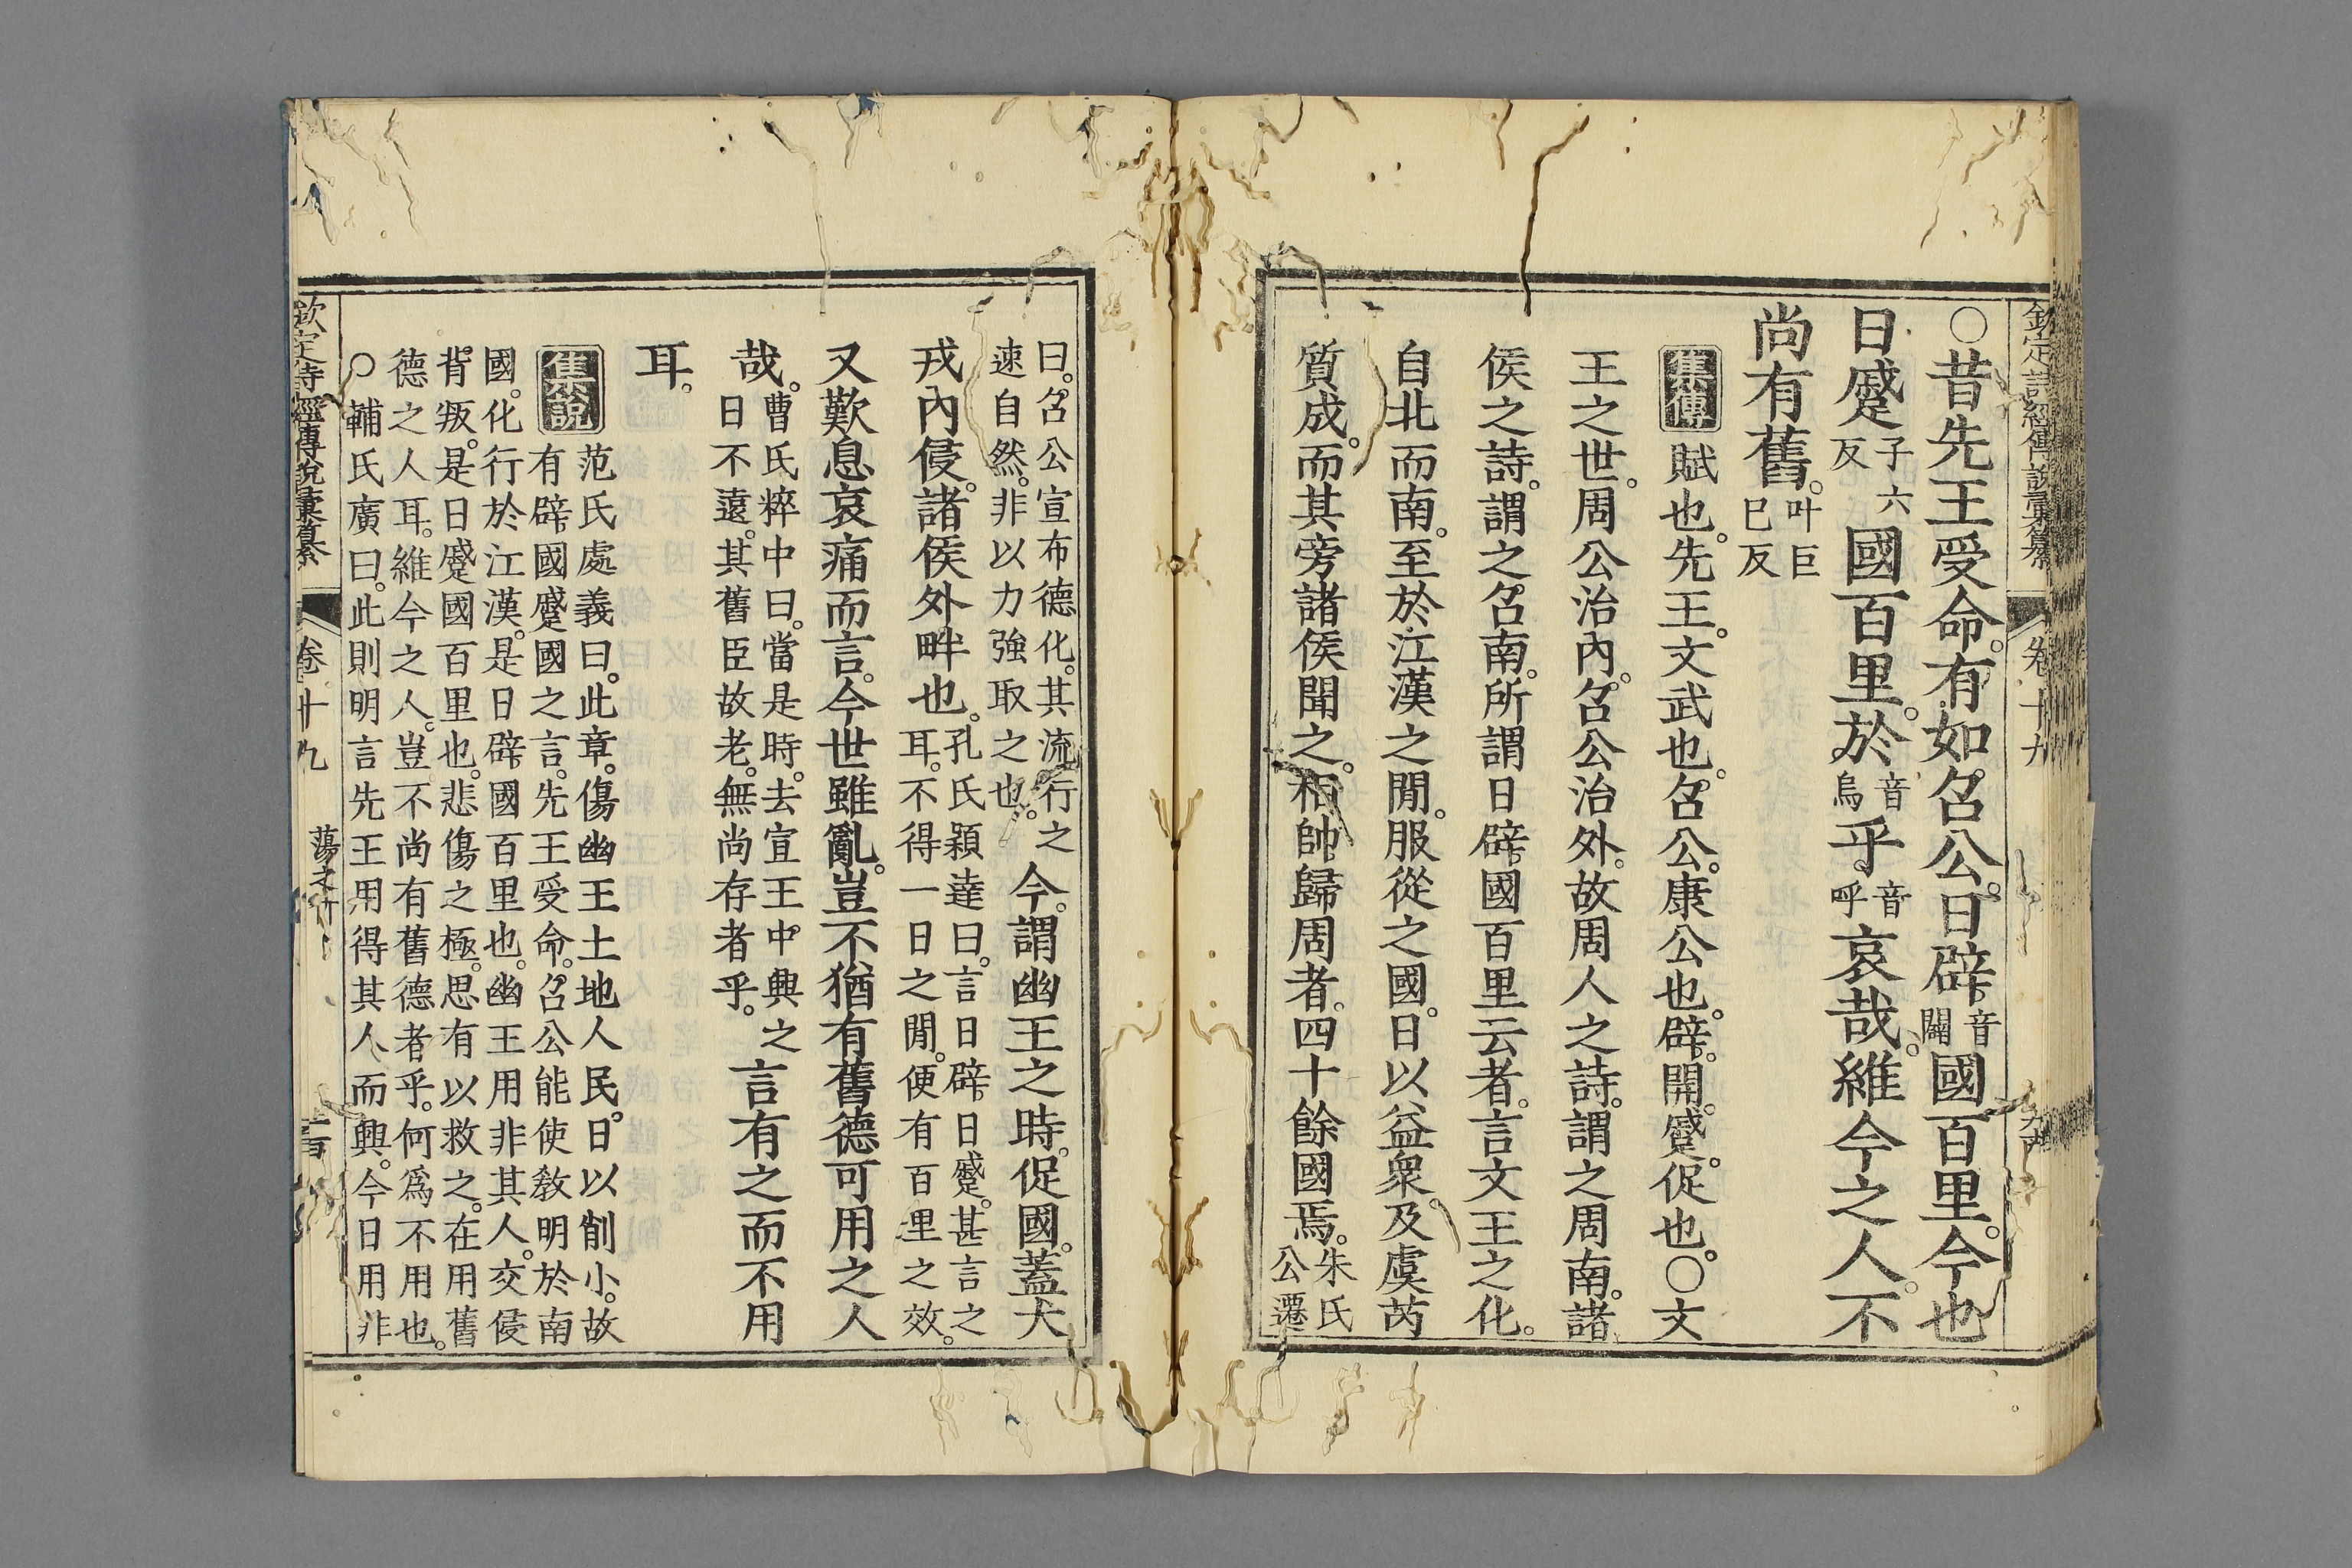 欽定詩經傳說彙纂 卷十九
〇昔先王受命。有如召公。日辟音闢國百里。今也
日蹙子六反國百里。於音烏乎音呼哀哉。維今之人。不
尚有舊。叶巨巳反
集傳 賦也。先王。文武也。召公。康公也。辟。開。蹙。促也。〇文
王之世。周公治內。召公治外。故周人之詩。謂之周南。諸
侯之詩。謂之召南。所謂日辟國百里云者。言文王之化。
自北而南。至於江漢之閒。服從之國。日以益衆。及虞芮
質成。而其旁諸侯聞之。相帥歸周者。四十餘國焉。朱氏公遷
曰。召公宣布德化。其流行之速自然。非以力強取之也。今。謂幽王之時。促國。蓋犬
戎內侵。諸侯外畔也。孔氏穎達曰。言日辟。日蹙。甚言之耳。不得一日之閒。便有百里之效。
又歎息哀痛而言。今世雖亂。豈不猶有舊德可用之人
哉。曹氏粹中曰。當是時。去宣王中興之日不遠。其舊臣故老。無尚存者乎。言有之而不用
耳。
集說 范氏處義曰。此章。傷幽王土地人民。日以削小。故
有辟國蹙國之言。先王受命。召公能使敎明於南
國。化行於江漢。是日辟國百里也。幽王用非其人。交侵
背叛。是日蹙國百里也。悲傷之極。思有以救之。在用舊
德之人耳。維今之人。豈不尚有舊德者乎。何爲不用也。
〇輔氏廣曰。此則明言先王用得其人而興。今日用非
欽定詩經傳說彙纂 卷十九 蕩之什